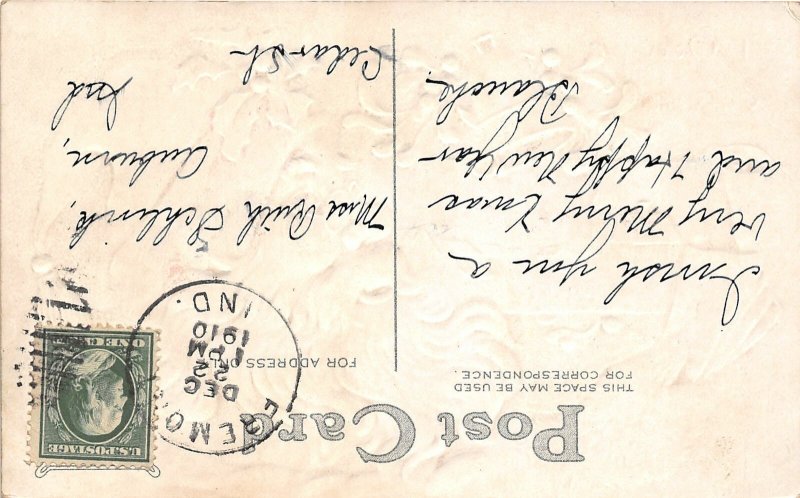 Post Card
THIS SPACE MAY BE USED
FOR CORRESPONDENCE.
FOR ADDRESS ONLY
U.S. POSTAGE
ONE CENT
DEC
1 PM
1910
IND.
I wish you a
very Merry Xmas
and Happy New Year
Blanche.
Miss Ruth
Auburn,
Ind
Cedar St.